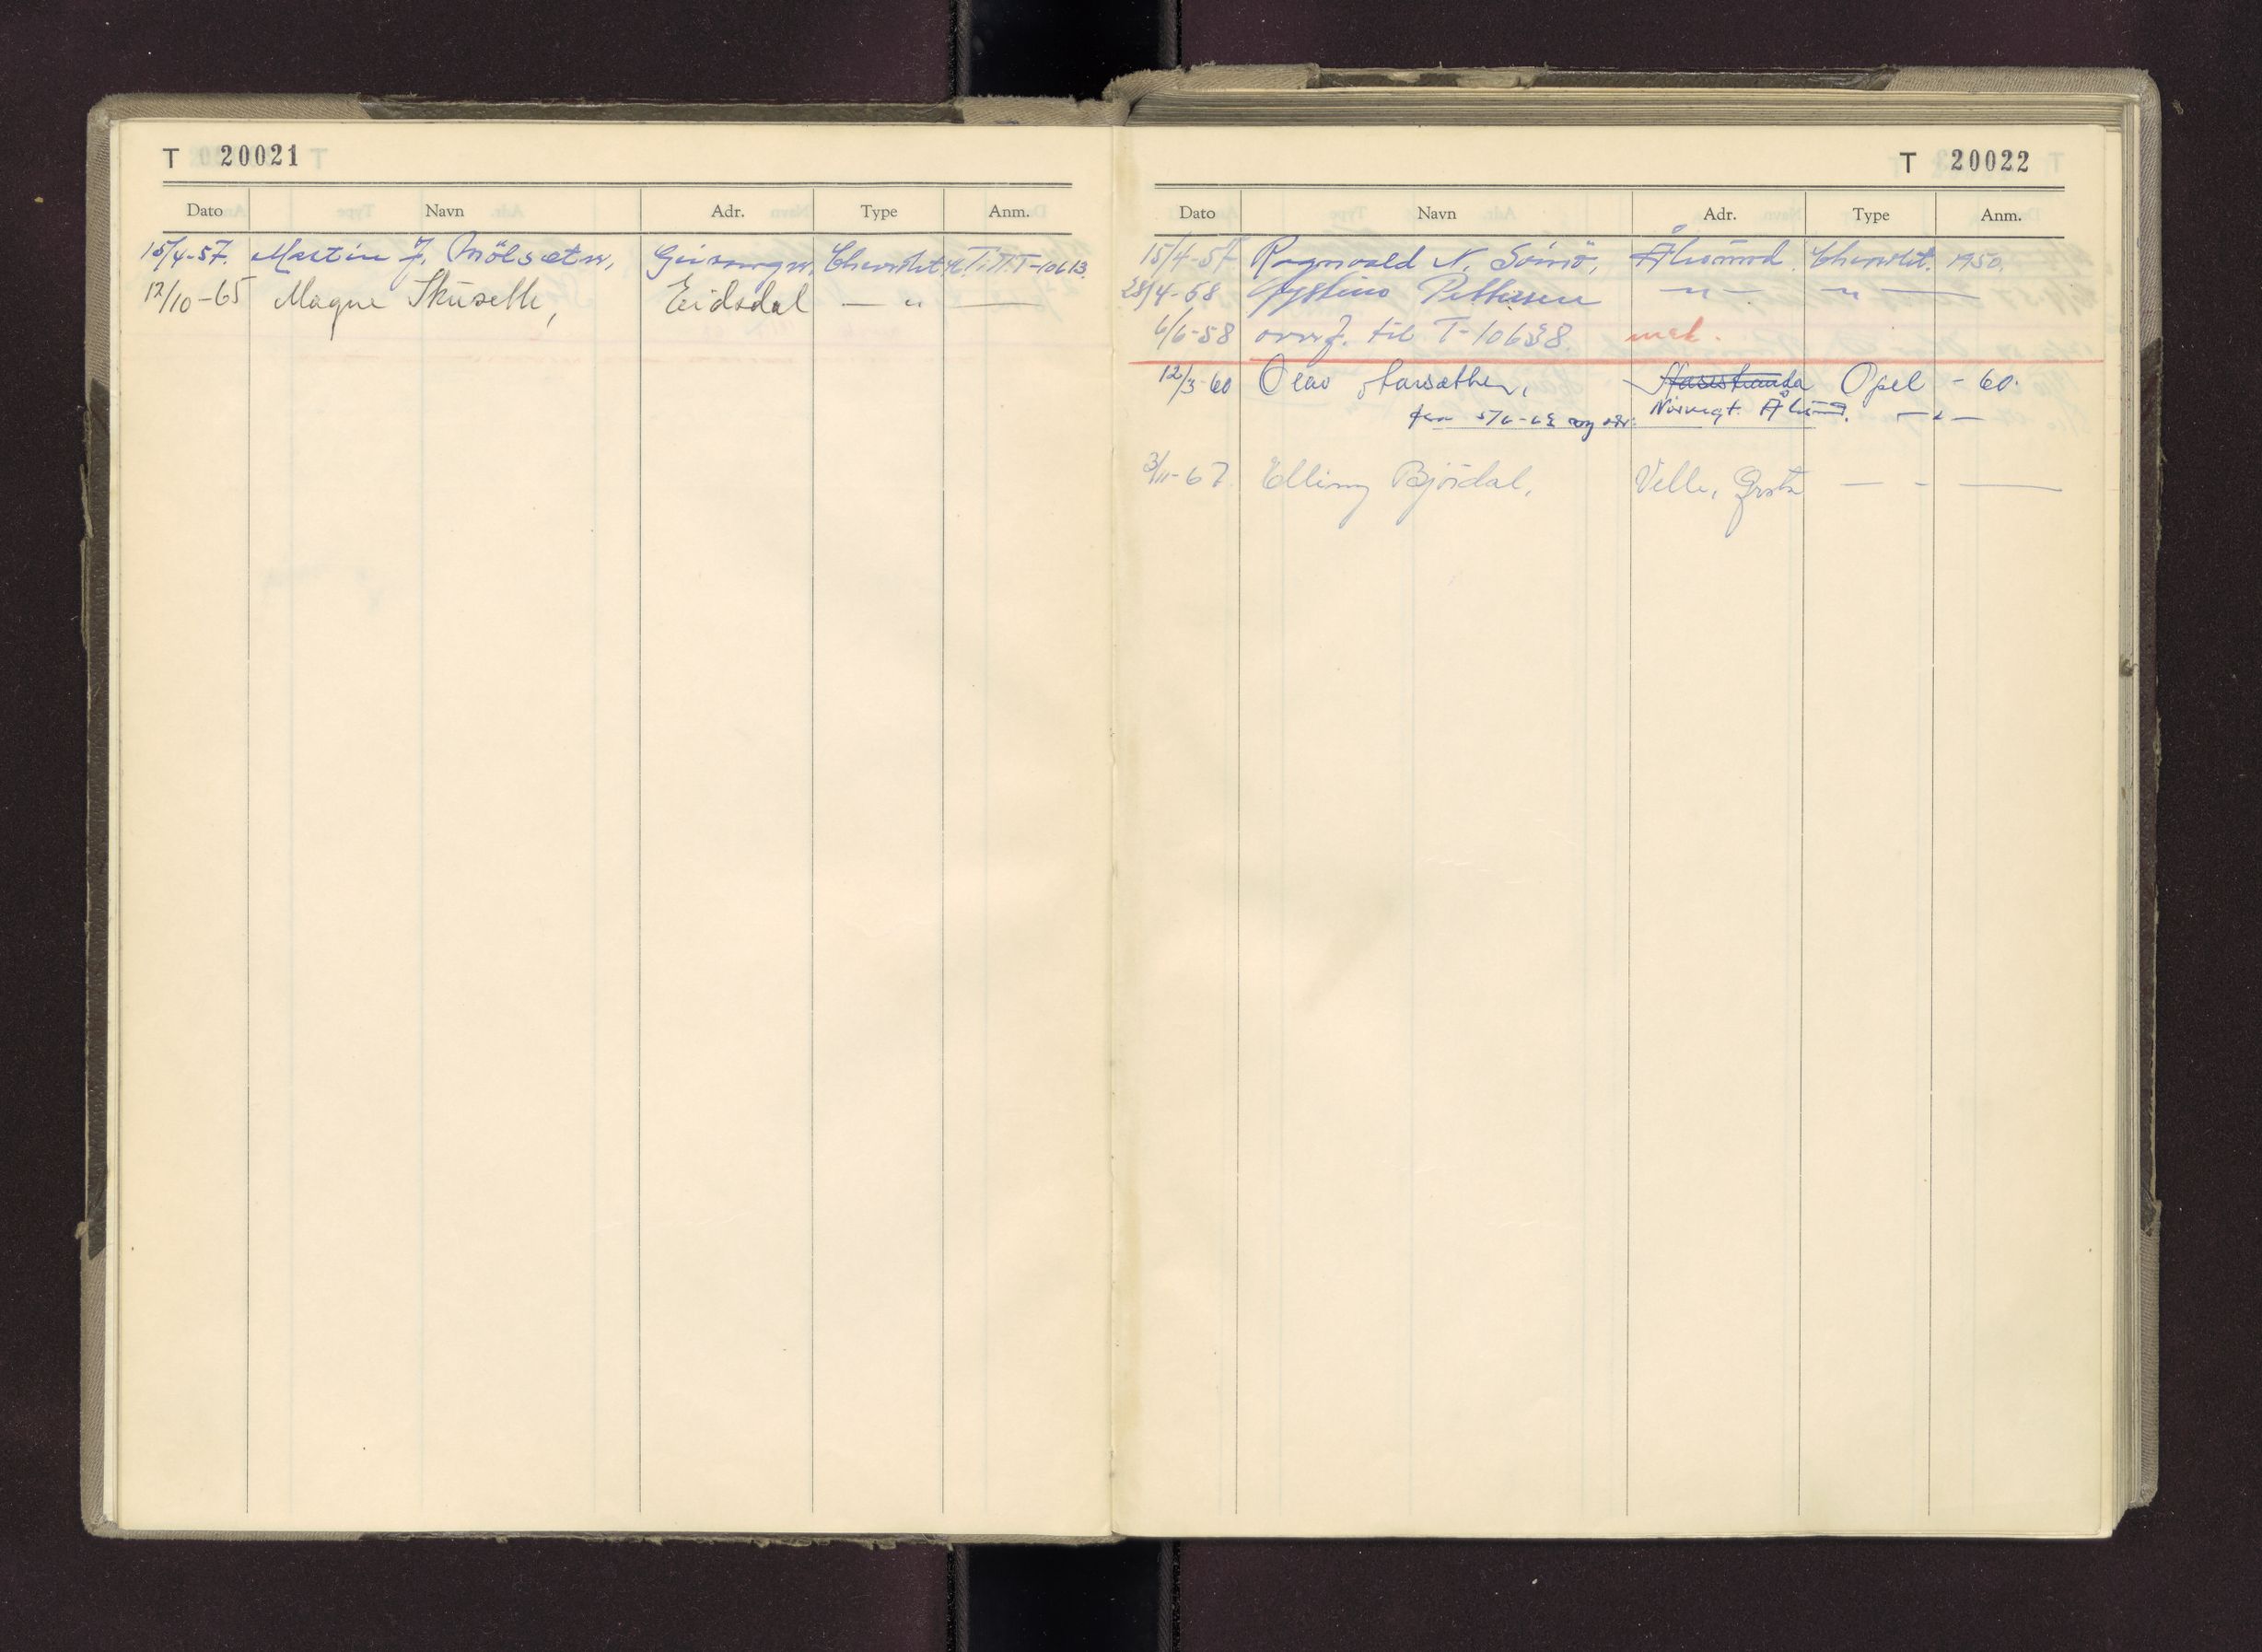 T 20021
Dato Navn Adr. Type Anm.
15/4-57. Martin J. Mölsæter, Geiranger, Chevrolet T-10613.
12/10-65 Magne Skuseth, Eidsdal — " —
T 20022
Dato Navn Adr. Type Anm.
15/4-57 Ragnvald N. Ålesund. Chevrolet. 1950.
28/4-58 Pettersen — " — — " —
6/6-58 overf. til T-10638. mek.
12/3-60 Olav Aarsæther, Opel - 60.
fra ny adr: Norvegt. Ålesund. — " —
3/11-67 Elling Bjørdal, Velle, Ørsta — - —